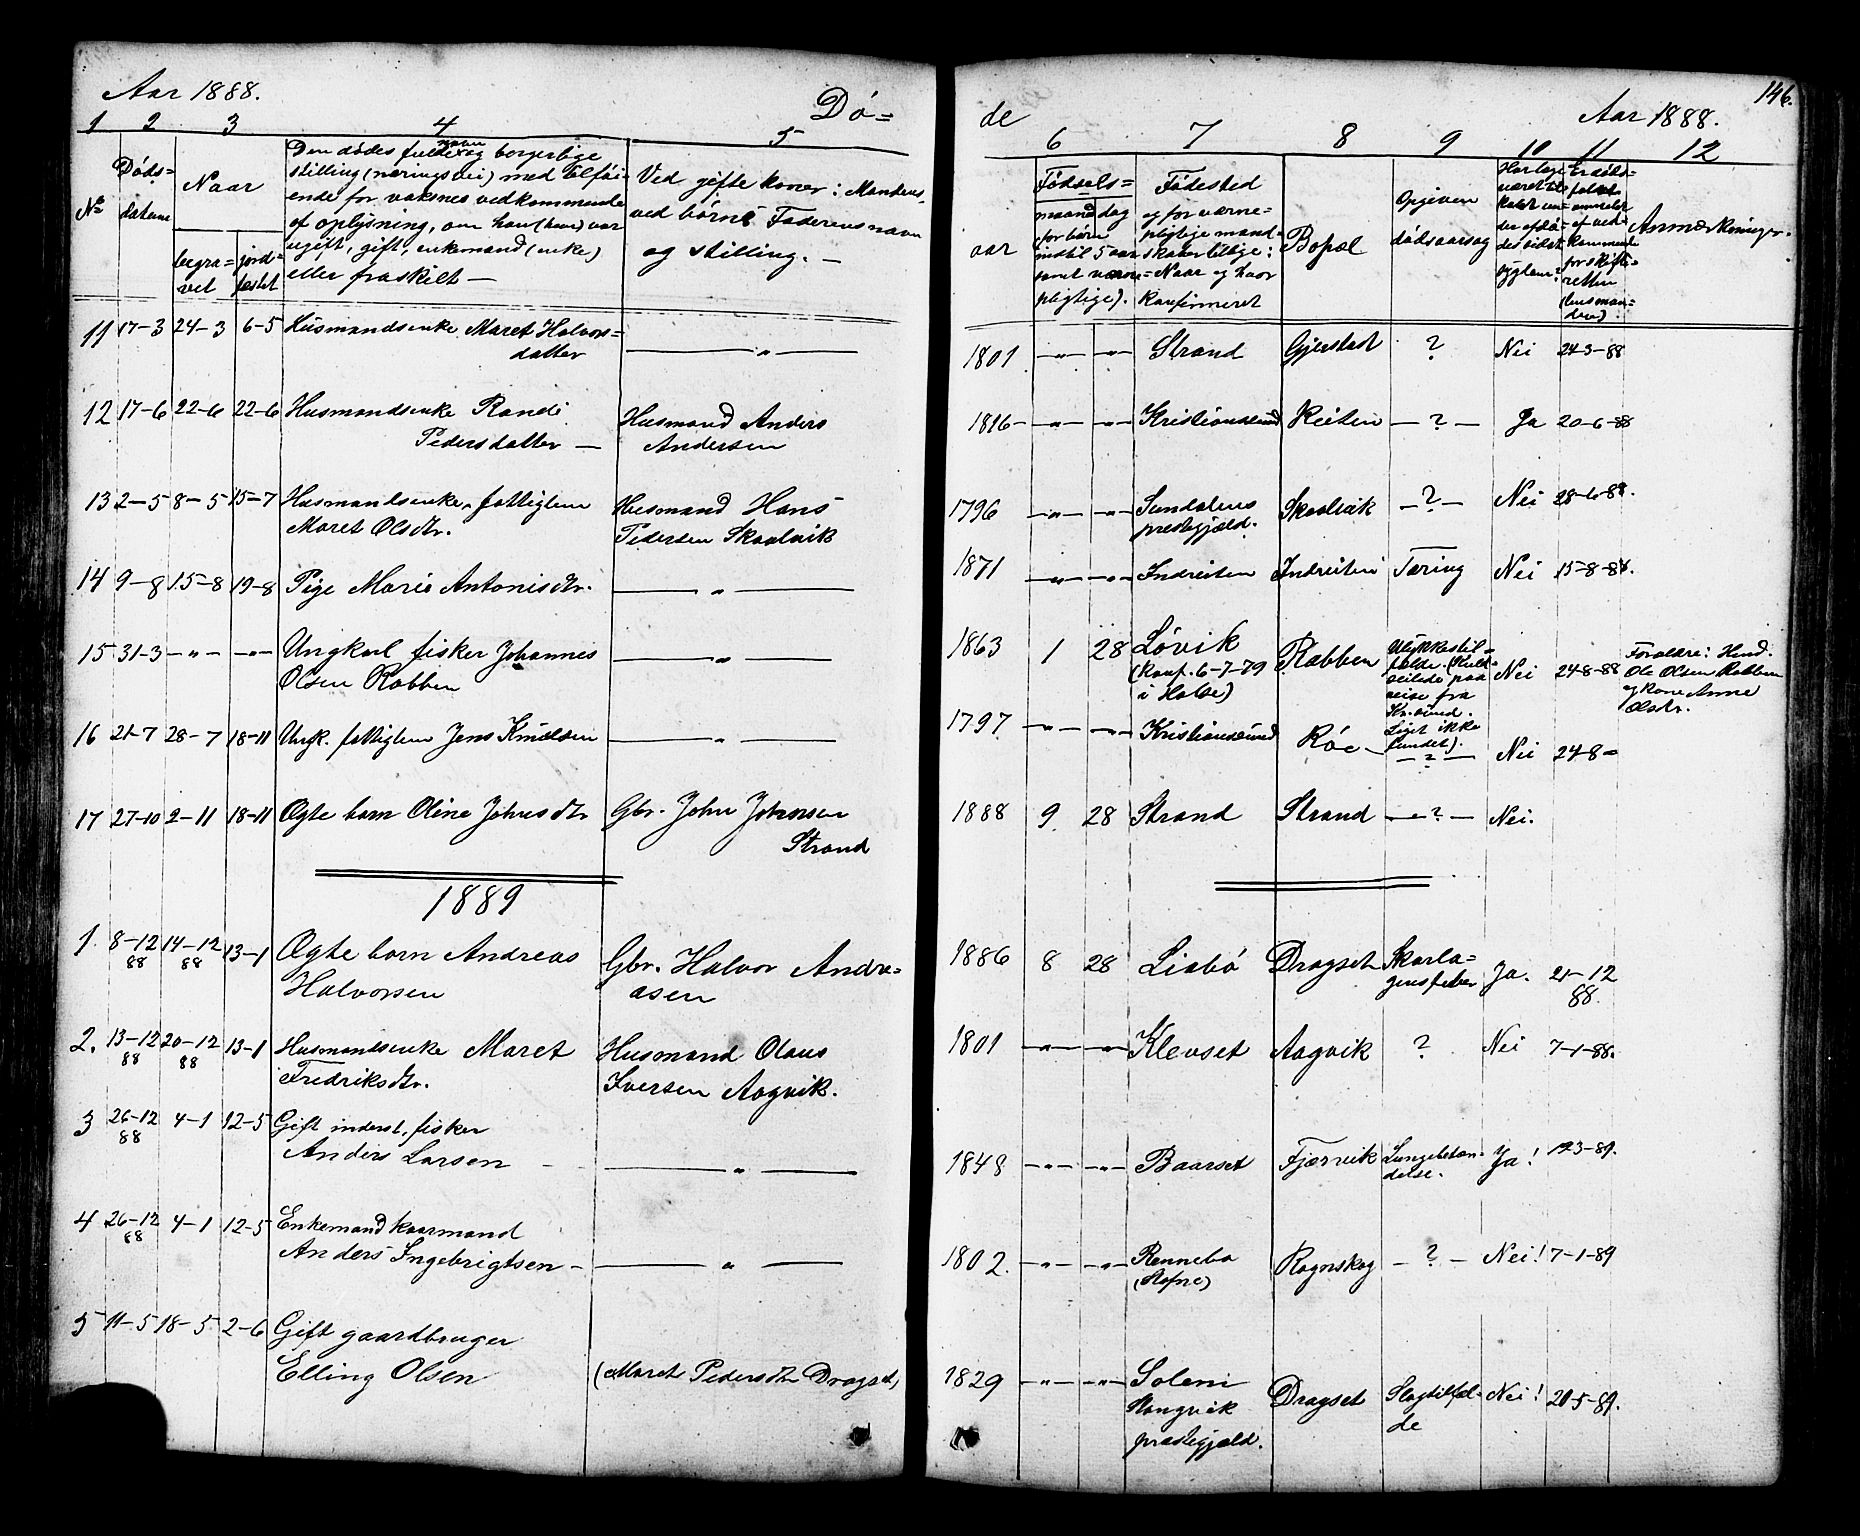 Aar 1888.
Dö=
1 2 3 4 5
No
Døds=
datum
Naar
begra=
vet
jord=
festet
Den dødes fulde navn og borgerlige
stilling (næringsvei) med tilføi=
ende for voksnes vedkommende
af oplysning, om han (hun) var
ugift, gift, enkemand (enke)
eller fraskilt —
Ved gifte koner: Mandens,
ved børn: Faderens navn
og stilling. —
11 17-3 24-3 6-5 Husmandsenke Maret Halvors=
datter — " —
12 17-6 22-6 22-6 Husmandsenke Randi Husmand Anders
Pedersdatter — Andersen
13 2-5 8-5 15-7 Husmandsenke, fattiglem Husmand Hans
Maret Olsdtr. Pedersen Skaalvik
14 9-8 15-8 19-8 Pige Marie Antonisdtr. — " —
15 31-3 — " — — " — Ungkarl fisker Johannes — " —
Olsen Rabben
16 21-7 28-7 18-11 Ungk. fattiglem Jens Knudsen — " —
17 27-10 2-11 18-11 Ægte barn Oline Johnsdtr Gbr. John Johnsen
Strand
1889
1. 8-12 14-12 13-1 Ægte barn Andreas Gbr. Halvor Andre=
88 88 Halvorsen asen
2. 13-12 20-12 13-1 Husmandsenke Maret Husmand Olaus
88 88 Fredriksdtr. Iversen Aagvik.
3 26-12 4-1 12-5 Gift inderst, fisker
88 Anders Larsen — " —
4 26-12 4-1 12-5 Enkemand kaarmand
88 Anders Ingebrigtsen — — " —
5 11-5 18-5 2-6 Gift gaardbruger
Elling Olsen (Maret Pedersdtr Dragset)
146.
de
Aar 1888.
6 7 8 9 10 11 12
Fødsels=
aar
maaned dag
(for børn
indtil 5 aar
samt værne=
pligtige).
Fødested
og for værne=
pligtige mand=
skaber tillige:
Naar og hvor
konfirmeret
Bopæl
Opgiven
dødsaarsag
Har læge
været til=
kaldt un=
der afdø=
des sidste
sygdom?
Er døds=
faldet
anmeldt
af ved=
kommende
for skifte=
retten
(lensman=
den).
Anmærkninger.
1801 — " — — " — Strand Gjerstad ? Nei 24-3-88
1816 — — " — — " — Kristiansund Reiten — ? — Ja 20-6-88
1796 — " — — " — Sundalens Skaalvik — ? — Nei 28-6-88.
prestegjæld.
1871 — " — — " — Indreiten Indreiten Tæring Nei 15-8-88.
1863 1 28 Løvik Rabben Ulykkestil=
fælde. (Kuld=
seilede paa
reise fra
Kr.sund.
Liget ikke
fundet). Nei 24-8-88
(Konf. 6-7-79
i Halse)
Forældre: Husd.
Ole Olsen Rabben
og kone Anne
Olsdtr.
1797 — " — — " — Kristiansund Røe — — ? — Nei 24-8 =
1888 9 28 Strand Strand — ? — Nei.
1886 8 28 Liabø Dragset Skarla=
gensfeber Ja. 21-12
88.
1801 — " — — " — Klevset Aagvik ? Nei 7-1-88.
1848 — " — — " — Baarset Fjærvik Lungebetæn=
delse. Ja! 12-3-89.
1802. — " — — " — Rennebo Rognskog — ? — Nei! 7-1-89
1829 — " — — " — Solem Dragset Slagtilfæl=
de Nei! 20-5-89.
Stangvik
prestegjæld.